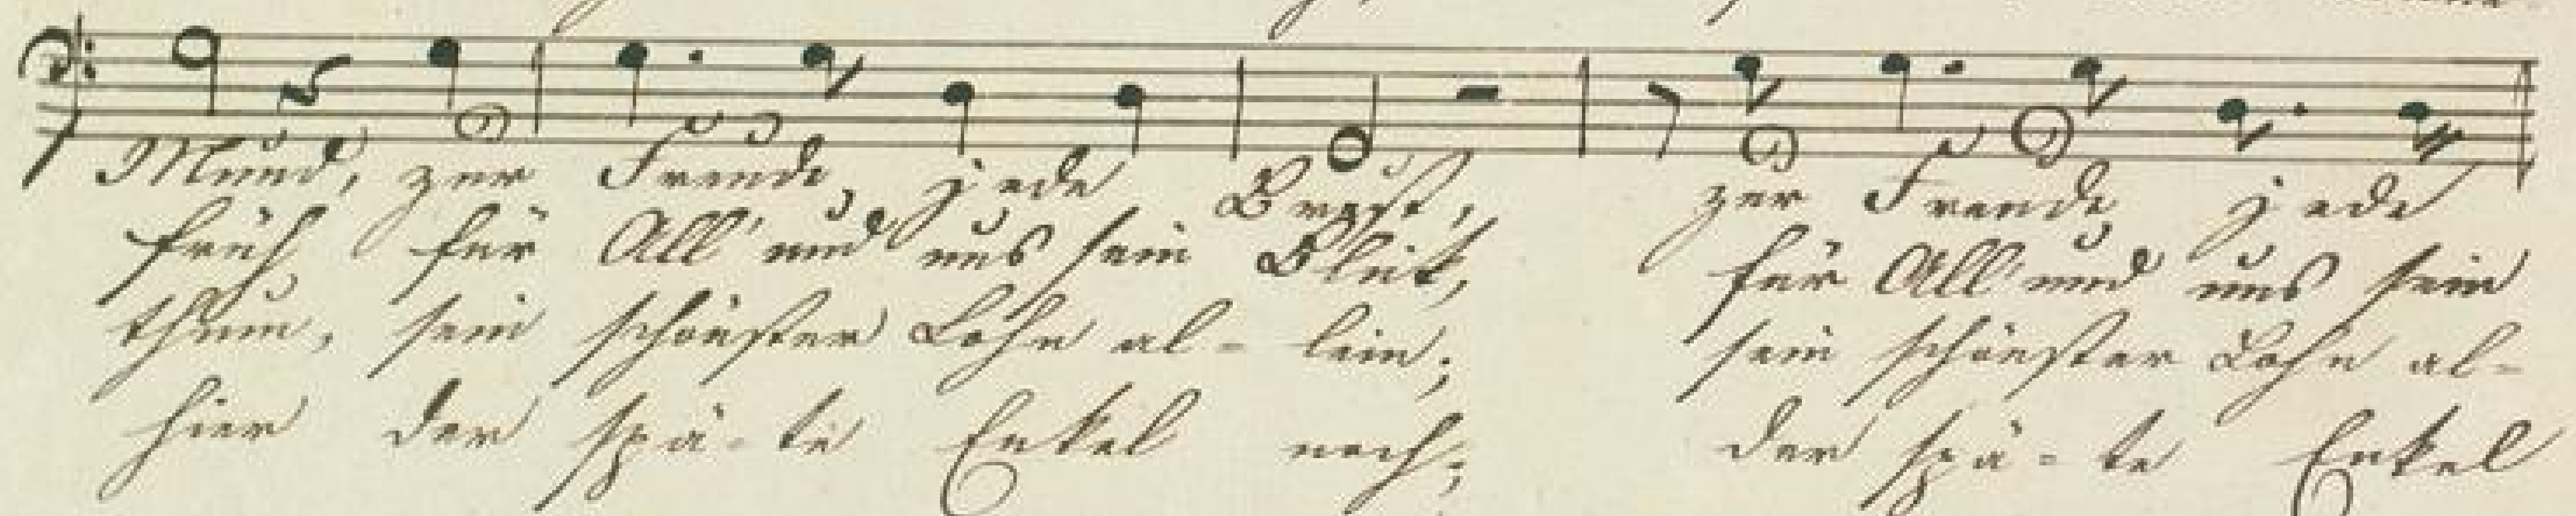 Mund, zur Freude jede Brust, zur Freude jede
früh für All' und uns sein Blut, für All' und uns sein
thum, sein schönster Lohn al- lein; sein schönster Lohn al-
hier der spä- te Enkel noch; der spä- te Enkel